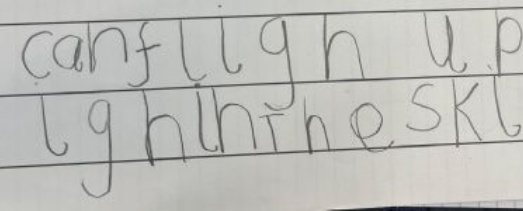 canflign up
ighintheski